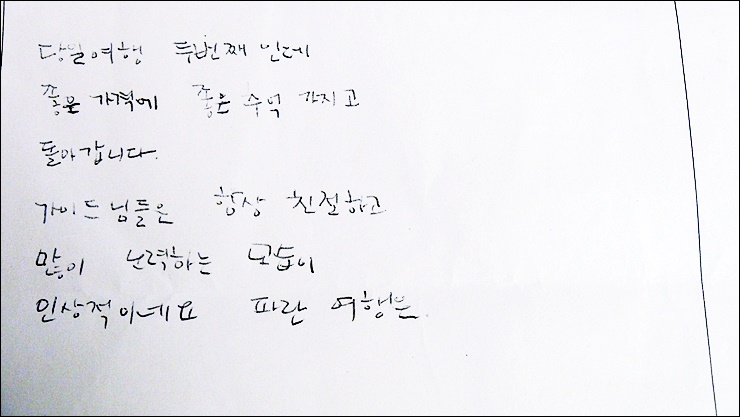 당일여행 두번째 인데
좋은 가격에 좋은 추억 가지고
돌아갑니다.
가이드님들은 항상 친절하고
많이 노력하는 모습이
인상적이네요 파란 여행은.